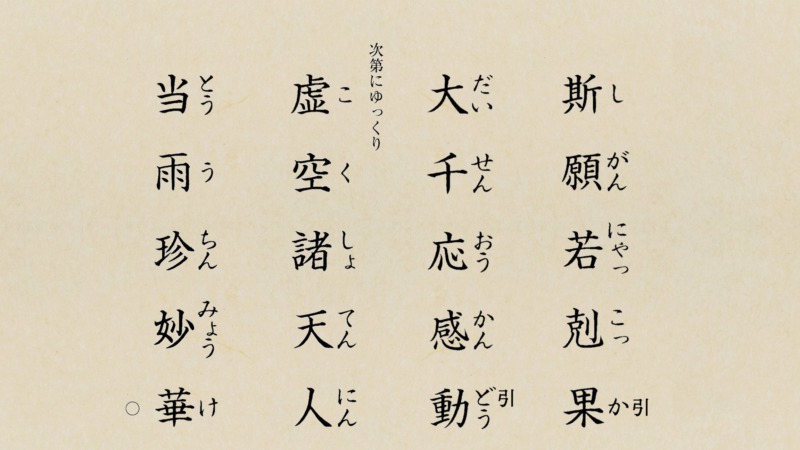 斯願若剋果
しがんにゃっこっか引
大千応感動
だいせんおうかんどう引
次第にゆっくり
虚空諸天人
こくしょてんにん
当雨珍妙華
とううちんみょうけ
○